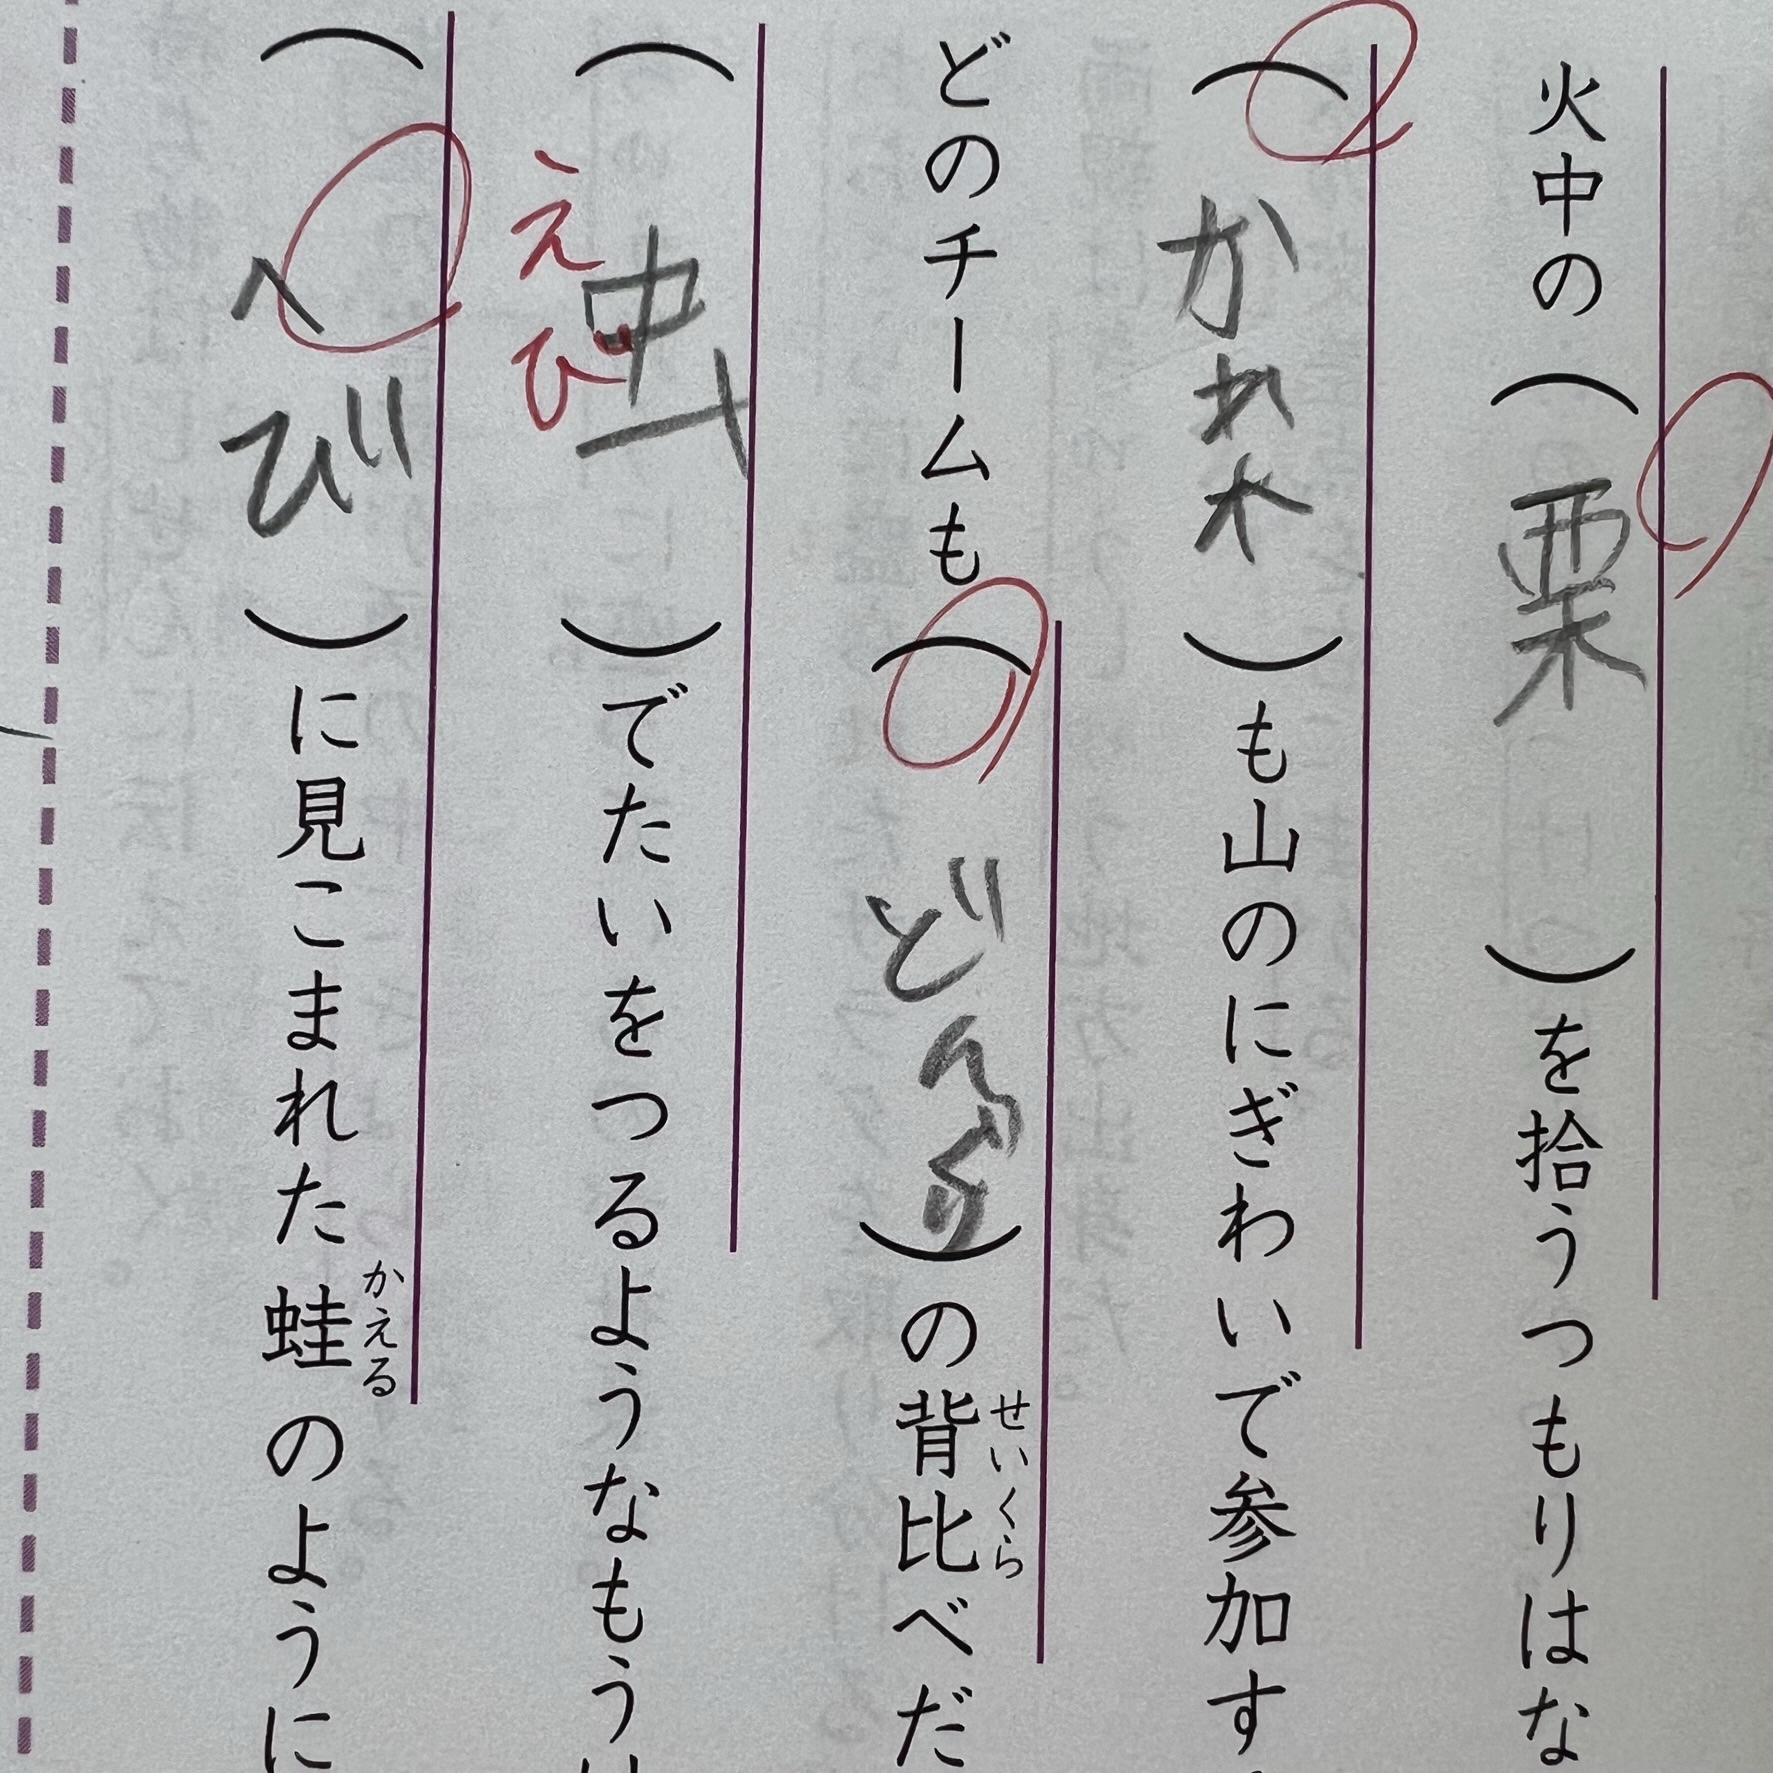 火中の(栗)を拾うつもりはな
(かれ木)も山のにぎわいで参加す
どのチームも(どんぐり)の背比べだ
せいくら
(虫)でたいをつるようなもう
えび
(へび)に見こまれた蛙のように
かえる